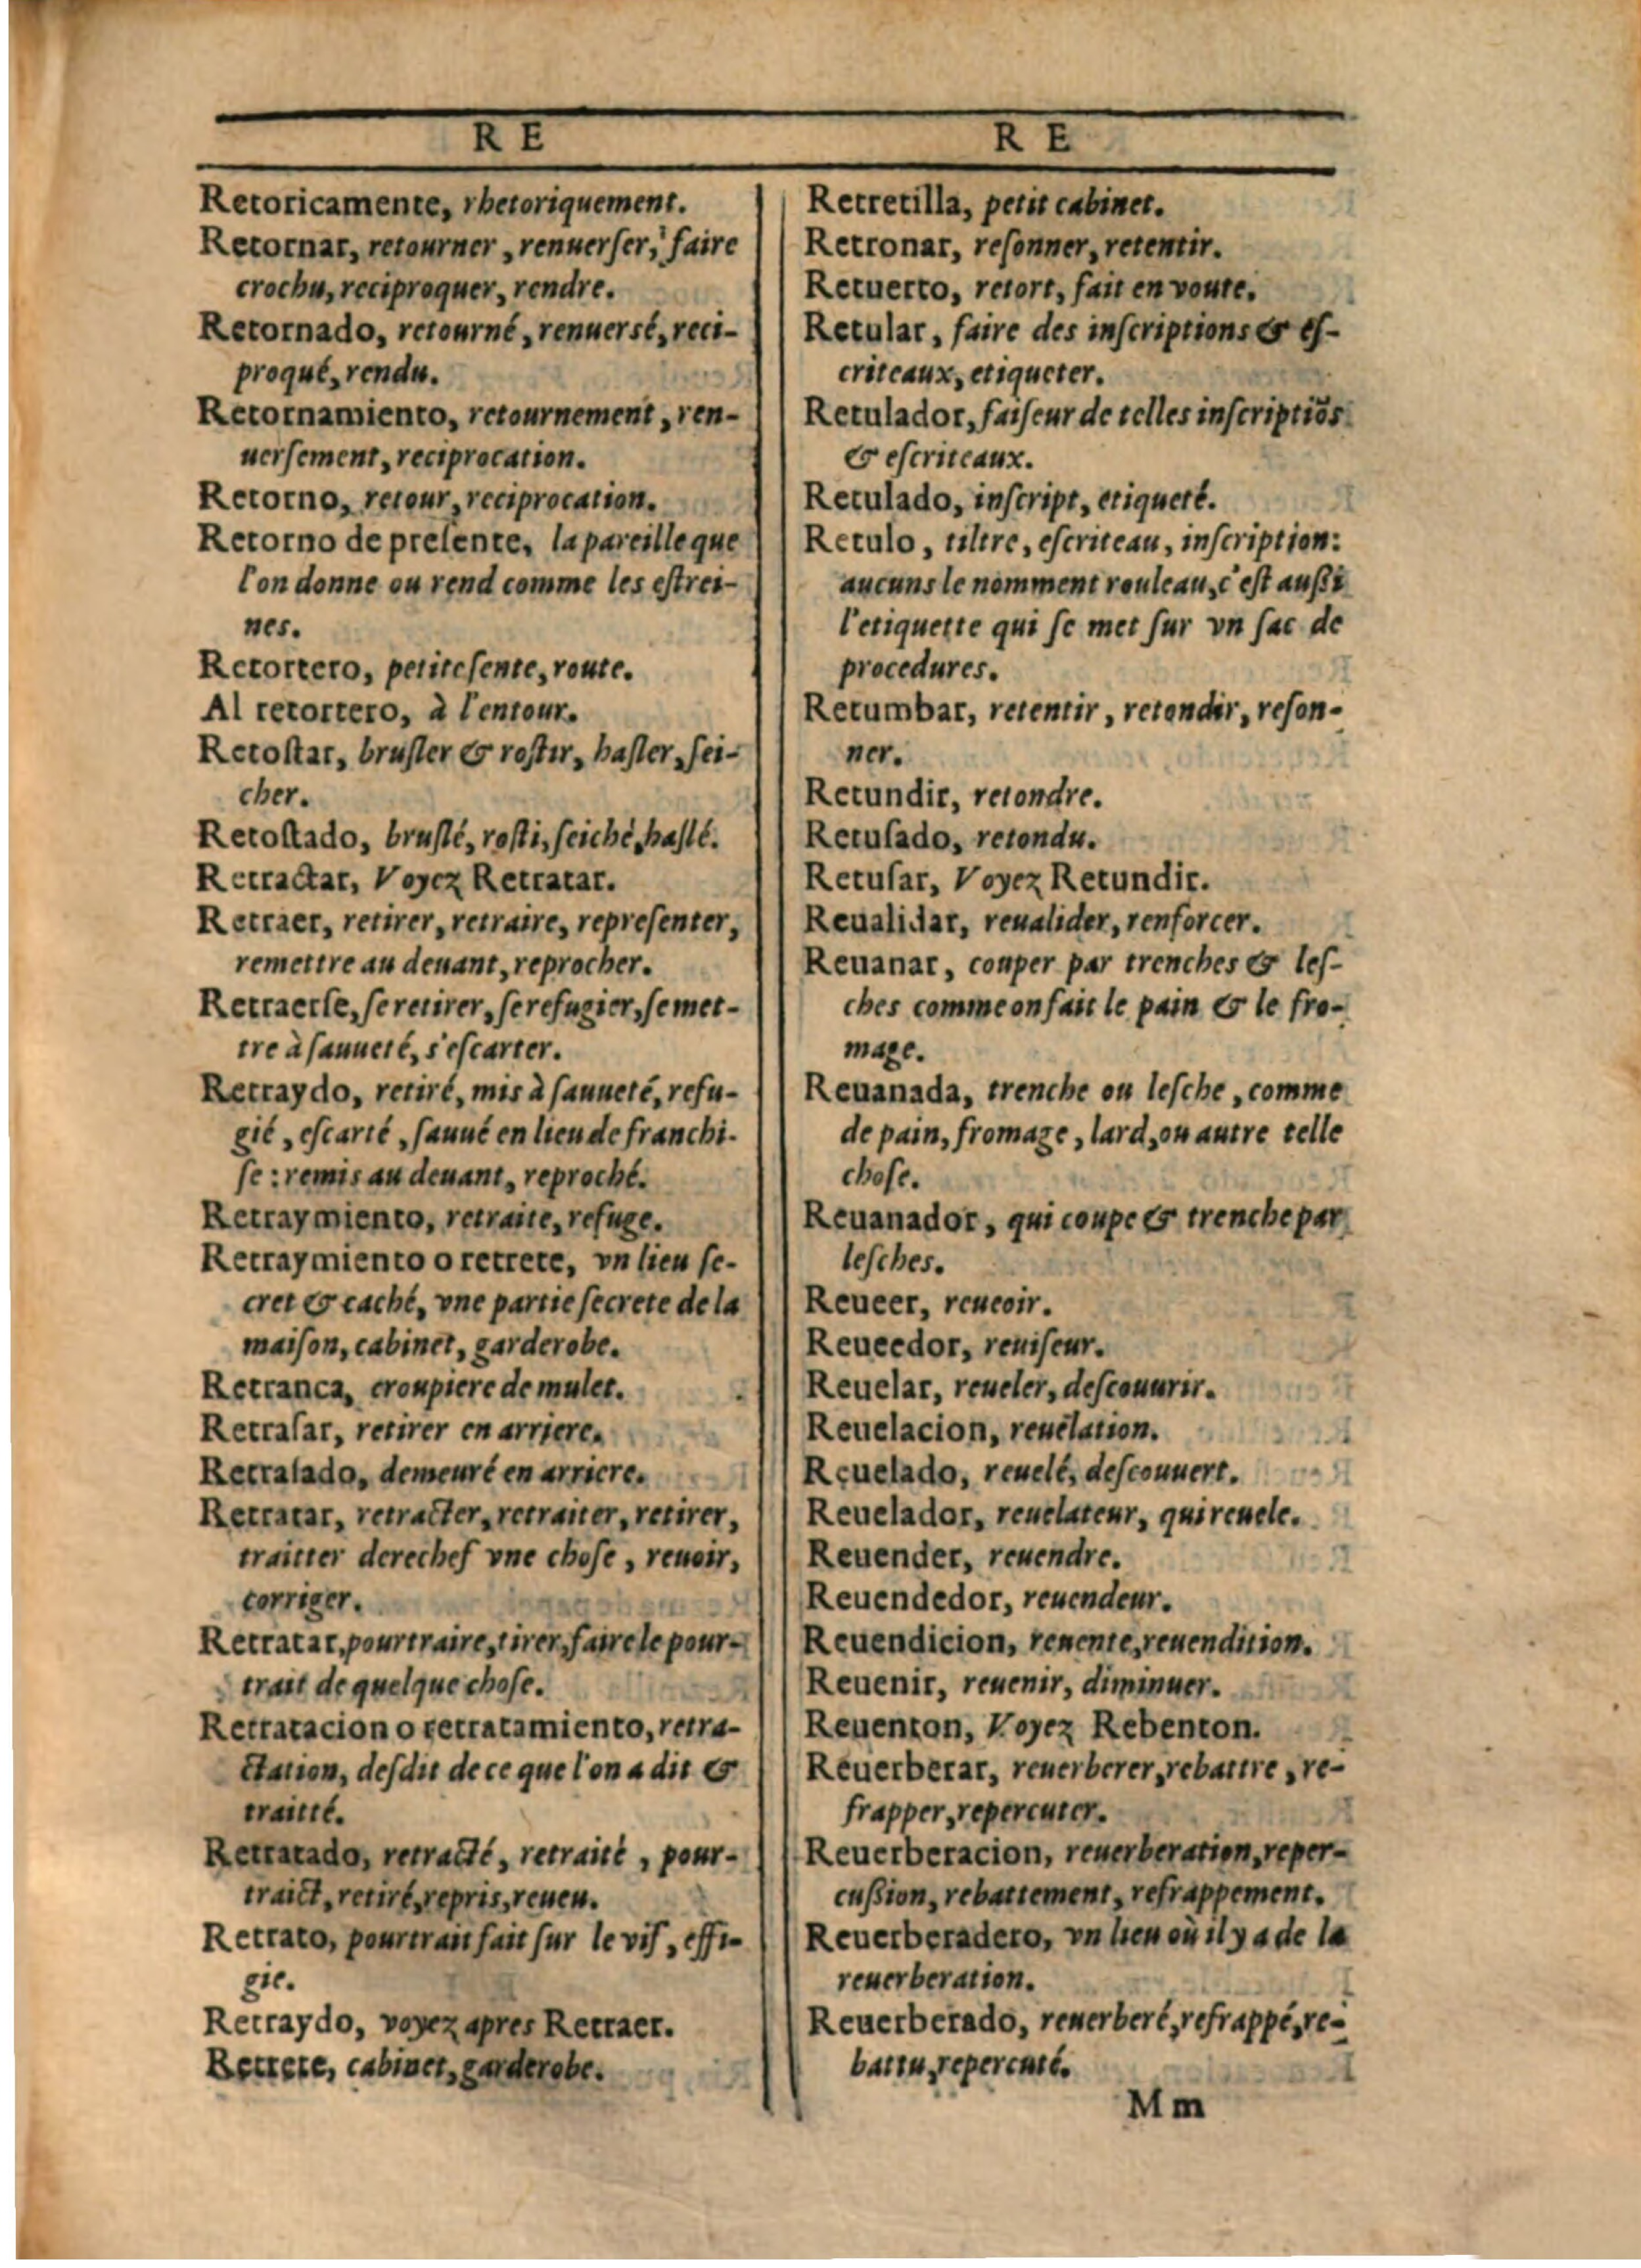 R E
Retoricamente, rhetoriquement.
Retornar, retourner, renuerſer, faire
crochu, reciproquer, rendre.
Retornado, retourné, renuersé, reci-
proqué, rendu.
Retornamiento, retournement, ren-
uerſement, reciprocation.
Retorno, retour, reciprocation.
Retorno de preſente, la pareille que
l'on donne ou rend comme les eſtrei-
nes.
Retortero, petite ſente, route.
Al retortero, à l'entour.
Retoſtar, bruſler & roſtir, haſler, ſei-
cher.
Retoſtado, bruſlé, roſti, ſeiché, haſlé.
Retractar, Voyez Retratar.
Retraer, retirer, retraire, repreſenter,
remettre au deuant, reprocher.
Retraerſe, ſe retirer, ſe refugier, ſe met-
tre à ſauueté, s'eſcarter.
Retraydo, retiré, mis à ſauueté, refu-
gié, eſcarté, ſauué en lieu de franchi-
ſe: remis au deuant, reproché.
Retraymiento, retraite, refuge.
Retraymiento o retrete, vn lieu ſe-
cret & caché, vne partie ſecrete de la
maiſon, cabinet, garderobe.
Retranca, croupiere de mulet.
Retraſar, retirer en arriere.
Retraſado, demeuré en arriere.
Retratar, retracter, retraiter, retirer,
traitter derechef vne choſe, reuoir,
corriger.
Retratar, pourtraire, tirer, faire le pour-
trait de quelque choſe.
Retratacion o retratamiento, retra-
ctation, deſdit de ce que l'on a dit &
traitté.
Retratado, retracté, retraité, pour-
traict, retiré, repris, reueu.
Retrato, pourtrait fait ſur le vif, effi-
gie.
Retraydo, voyez apres Retraer.
Retrete, cabinet, garderobe.
R E
Retretilla, petit cabinet.
Retronar, reſonner, retentir.
Retuerto, retort, fait en voute.
Retular, faire des inſcriptions & eſ-
criteaux, etiqueter.
Retulador, faiſeur de telles inſcriptiōs
& eſcriteaux.
Retulado, inſcript, etiqueté.
Retulo, tiltre, eſcriteau, inſcription:
aucuns le nomment rouleau, c'eſt auſsi
l'etiquette qui ſe met ſur vn ſac de
procedures.
Retumbar, retentir, retondir, reſon-
ner.
Retundir, retondre.
Retuſado, retondu.
Retuſar, Voyez Retundir.
Reualidar, reualider, renforcer.
Reuanar, couper par trenches & leſ-
ches comme on fait le pain & le fro-
mage.
Reuanada, trenche ou leſche, comme
de pain, fromage, lard, ou autre telle
choſe.
Reuanador, qui coupe & trenche par
leſches.
Reueer, reueoir.
Reueedor, reuiſeur.
Reuelar, reueler, deſcouurir.
Reuelacion, reuelation.
Reuelado, reuelé, deſcouuert.
Reuelador, reuelateur, qui reuele.
Reuender, reuendre.
Reuendedor, reuendeur.
Reuendicion, reuente, reuendition.
Reuenir, reuenir, diminuer.
Reuenton, Voyez Rebenton.
Reuerberar, reuerberer, rebattre, re-
frapper, repercuter.
Reuerberacion, reuerberation, reper-
cuſsion, rebattement, refrappement.
Reuerberadero, vn lieu où il y a de la
reuerberation.
Reuerberado, reuerberé, refrappé, re-
battu, repercuté.
Mm